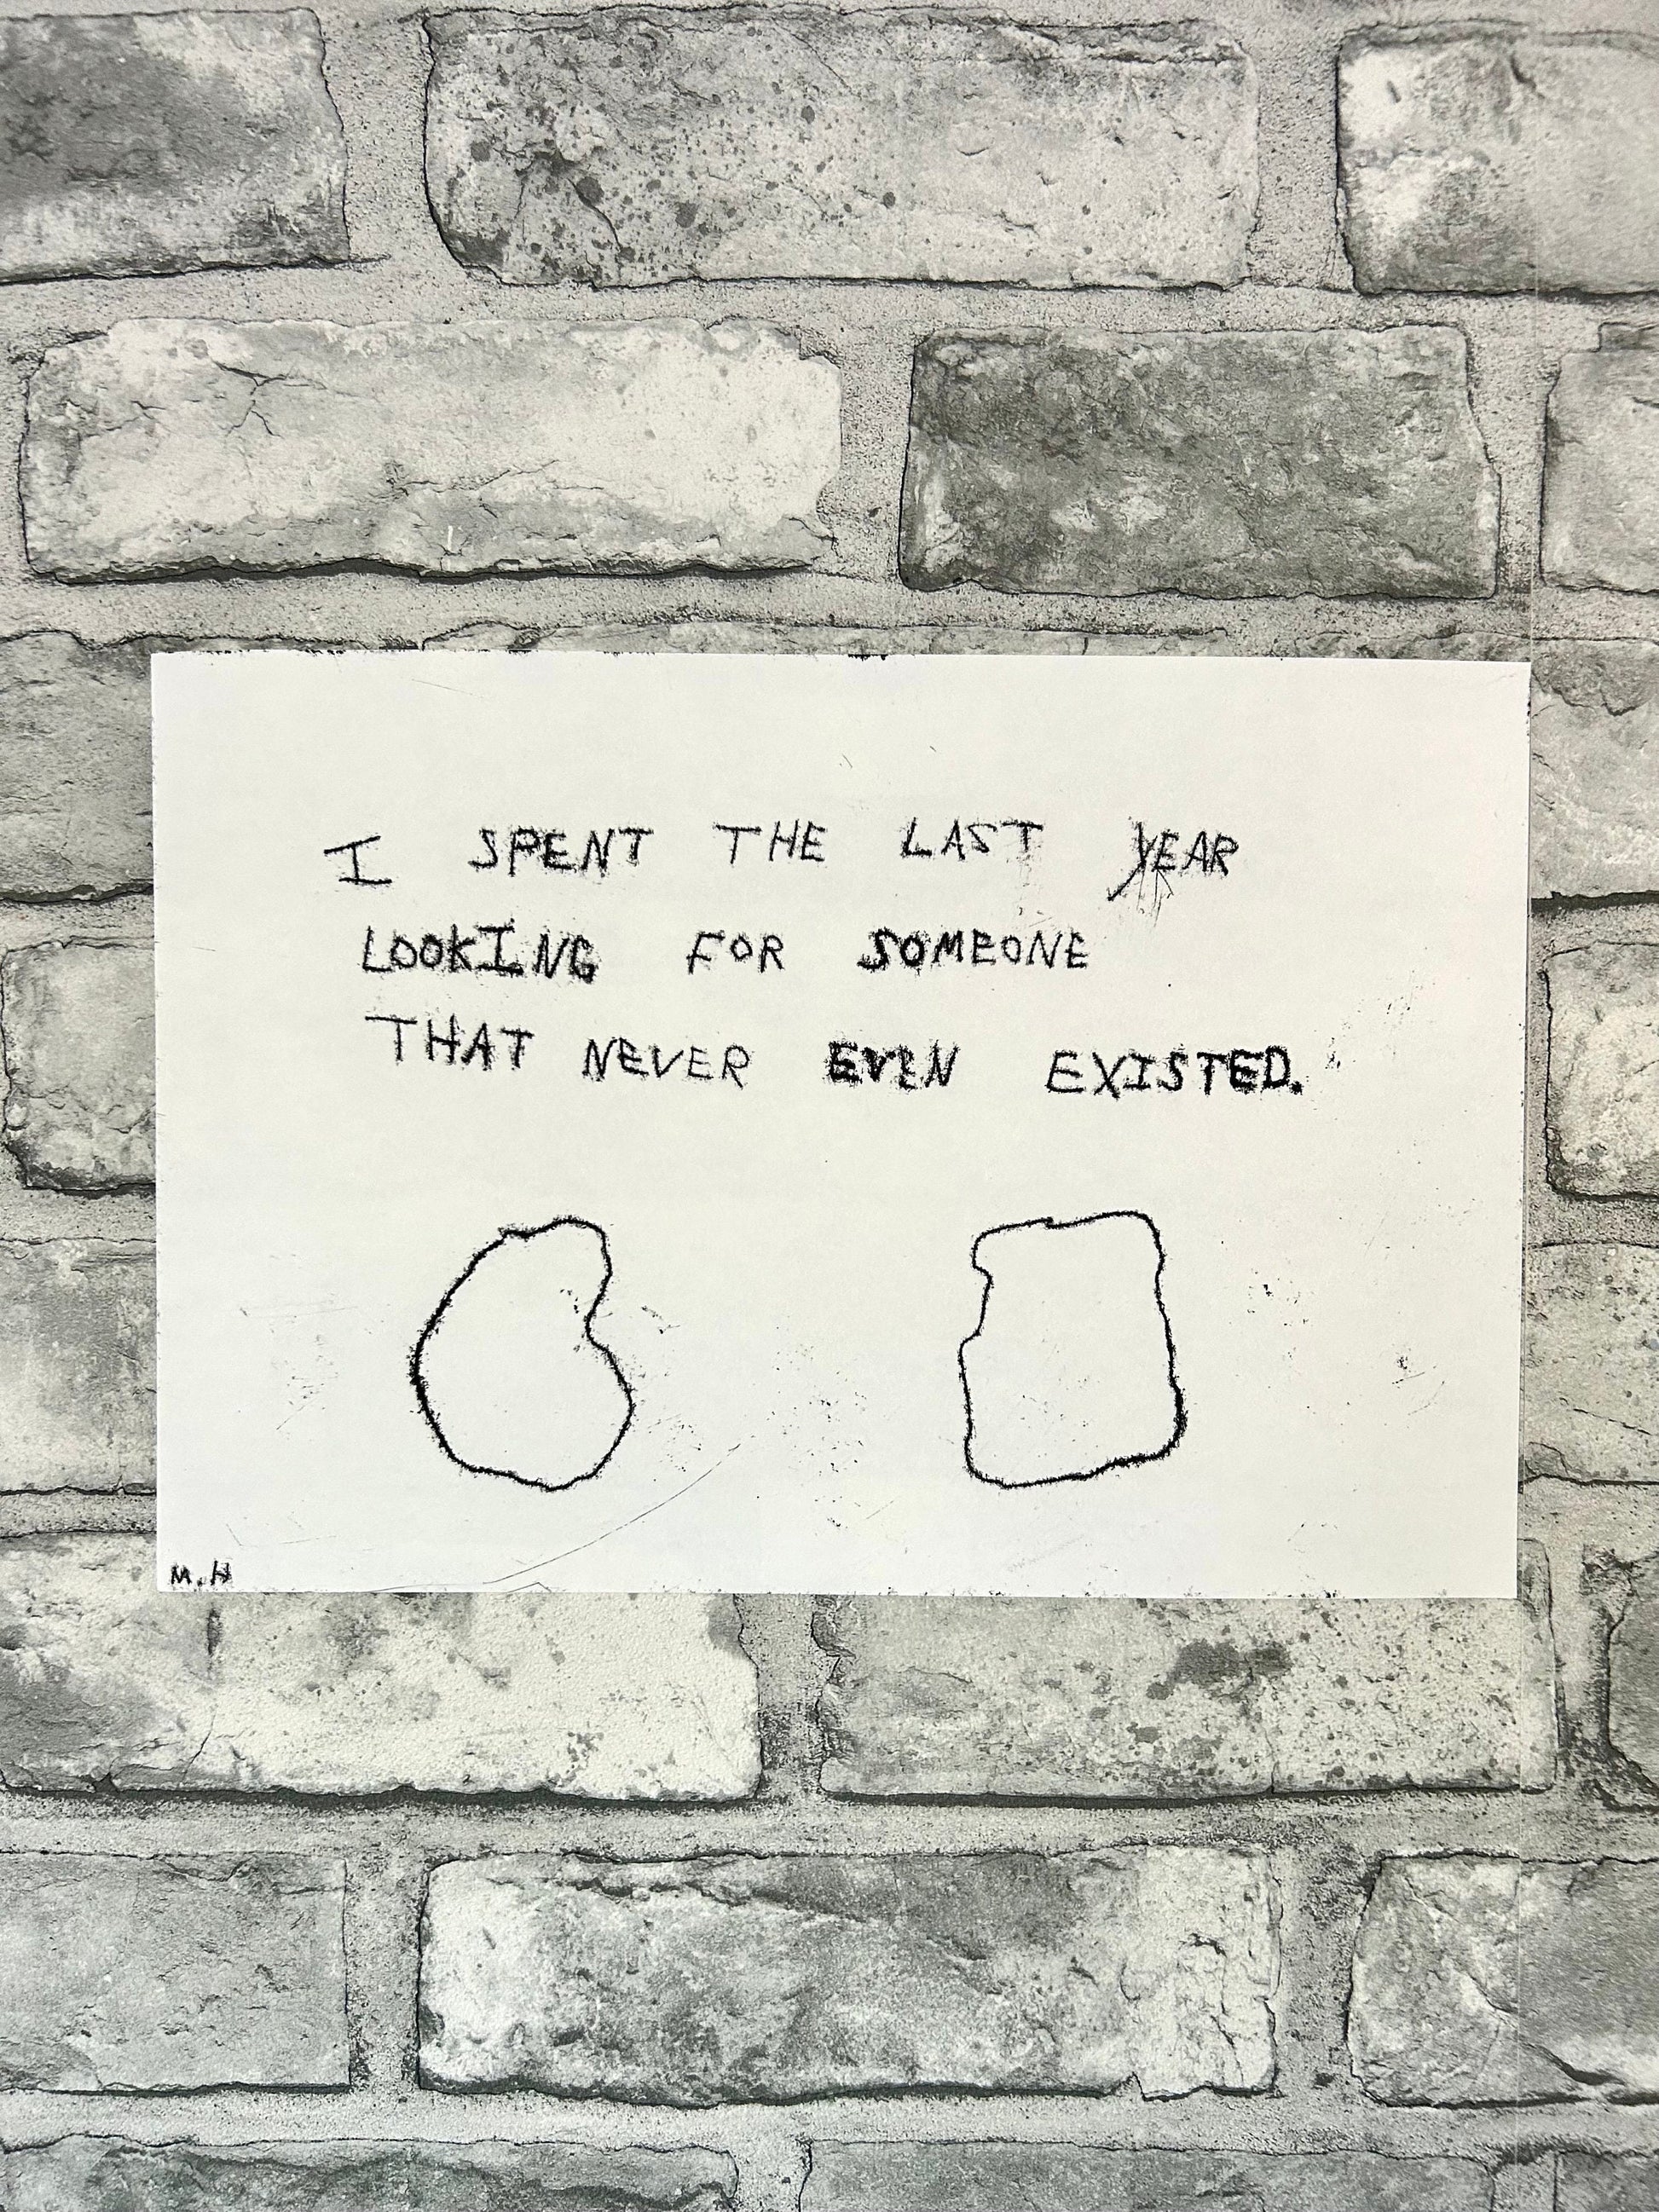 I SPENT THE LAST YEAR
LOOKING FOR SOMEONE
THAT NEVER EVEN EXISTED.
M.H